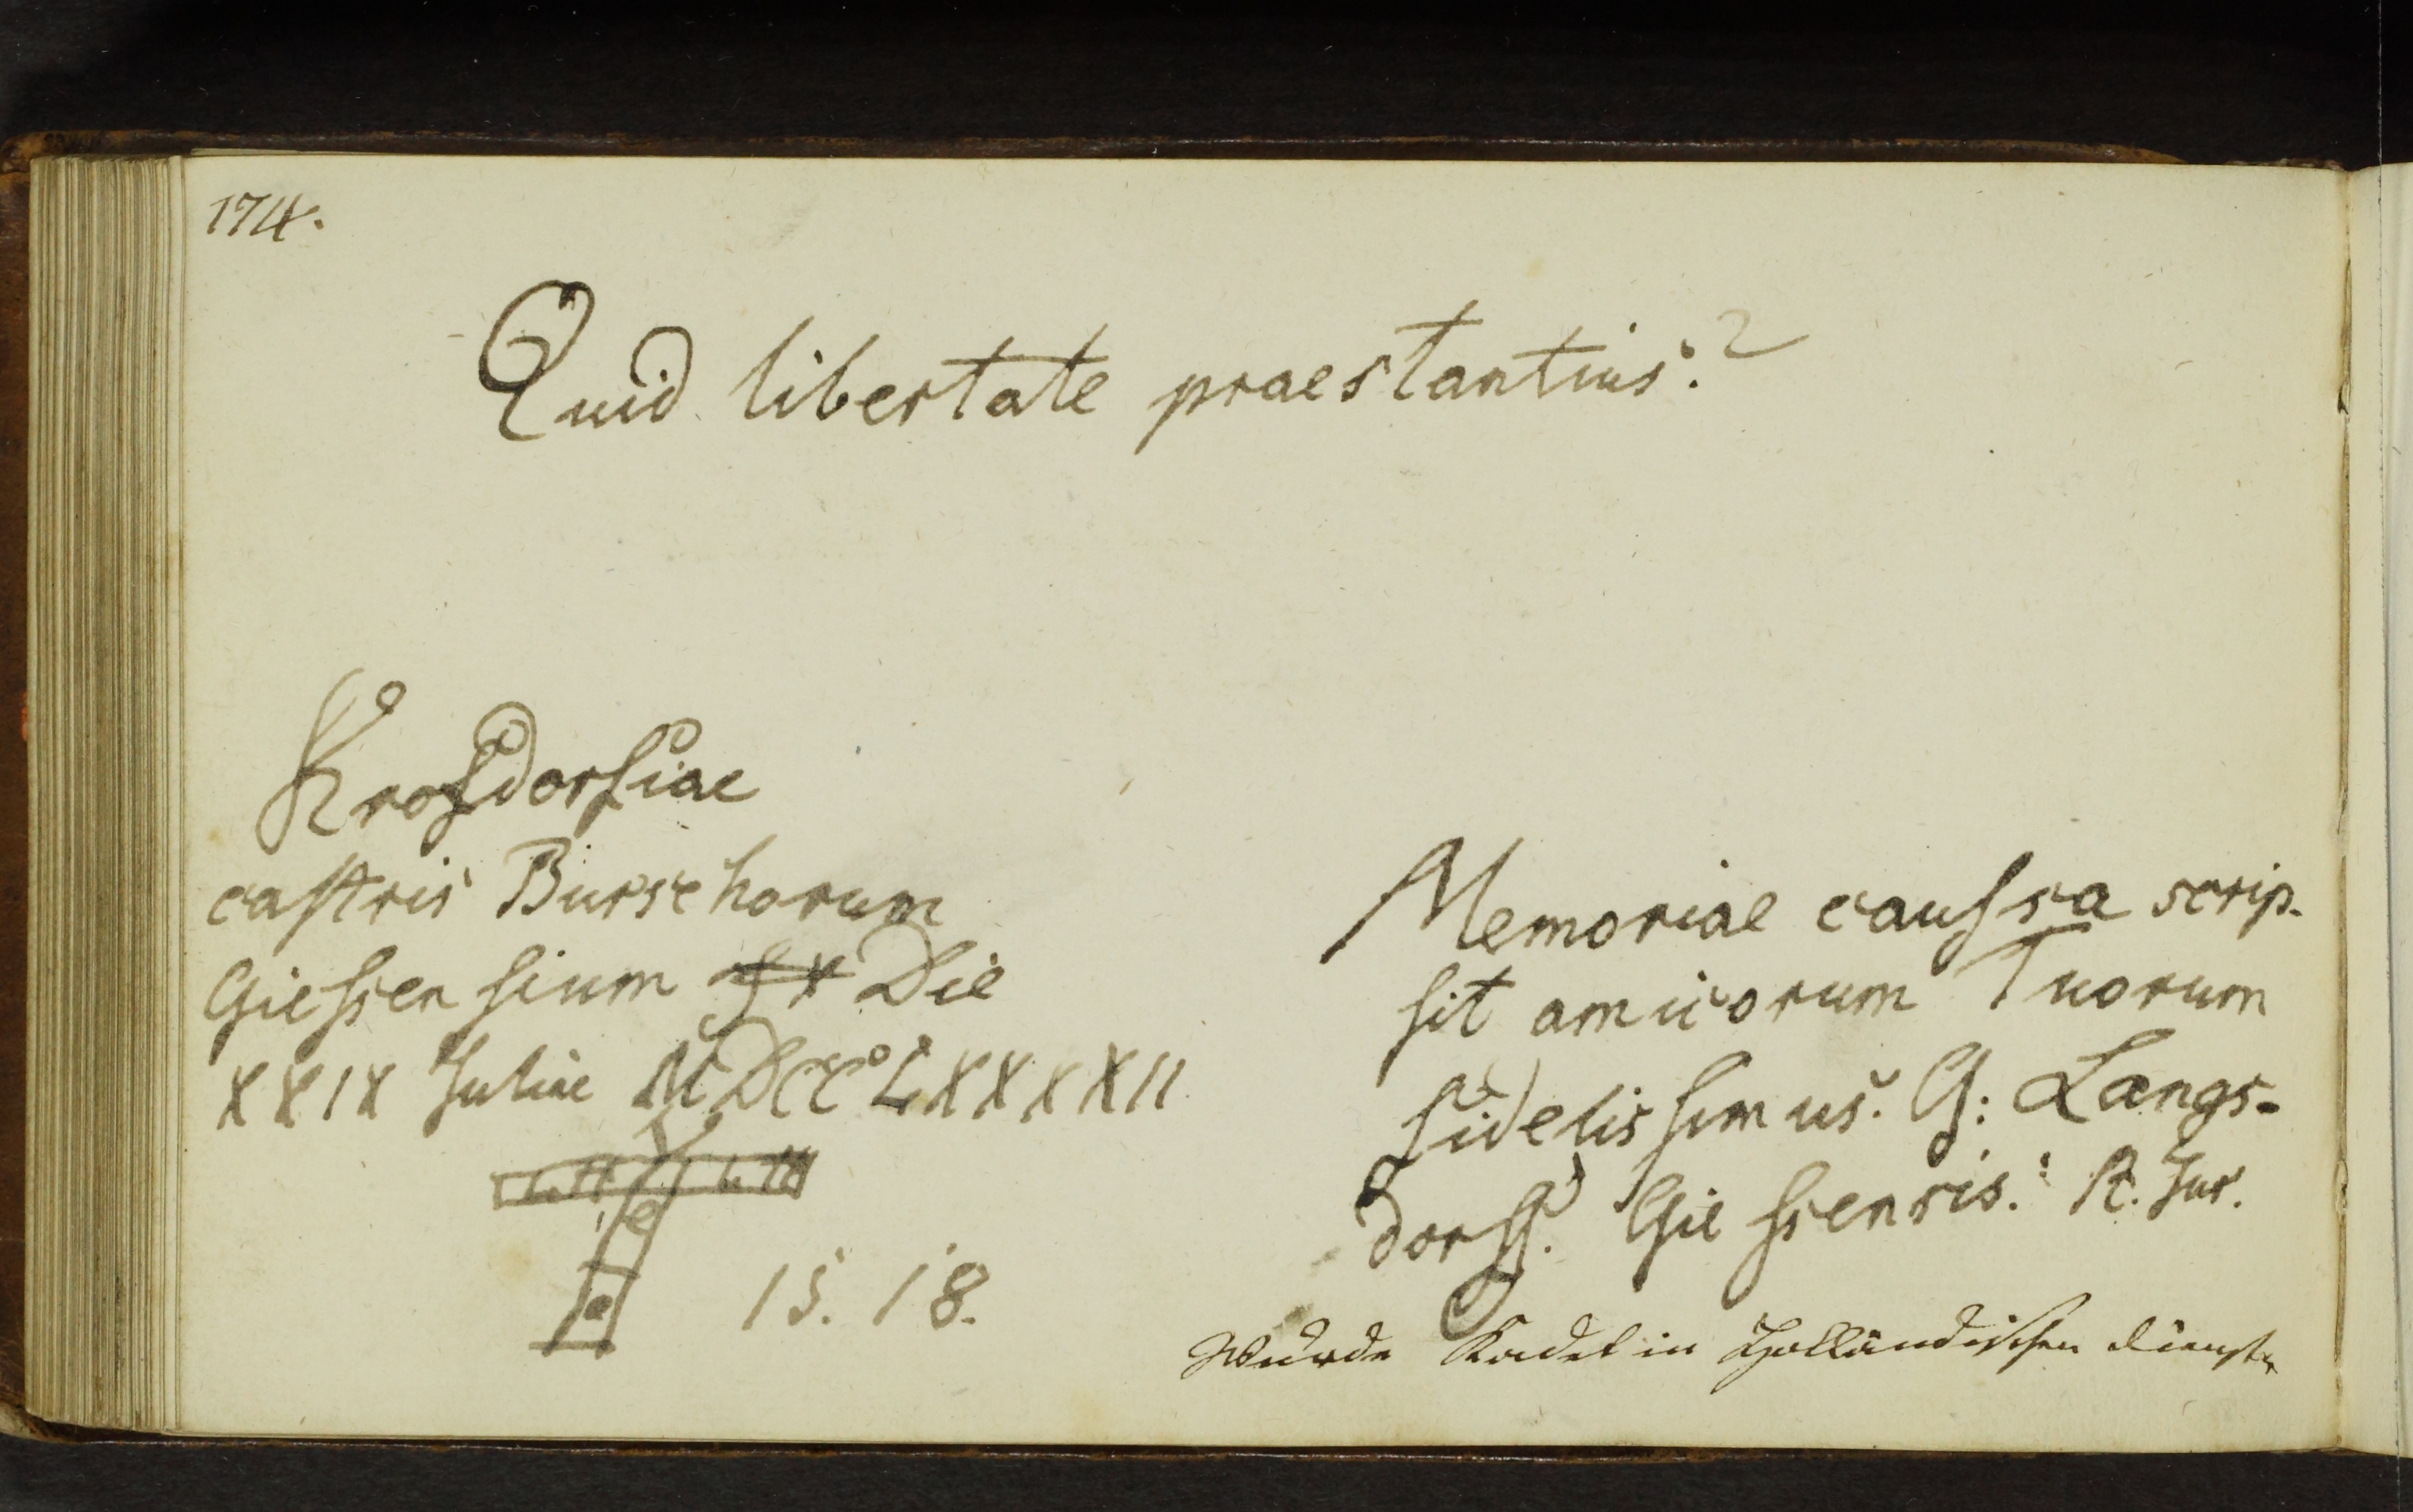 174.
Quid libertate praestantius?
Krofsdorfiae
castris Burschorum
Giessensium Die
XXIX Juliae MDCCLXXXXII
15. 18.
Memoriae caussa scrip-
sit amicorum Tuorum
fidelissimus. G: Langs-
dorff. Giessensis. St. Jur.
Wurde Kadet in Holländischen Dienste